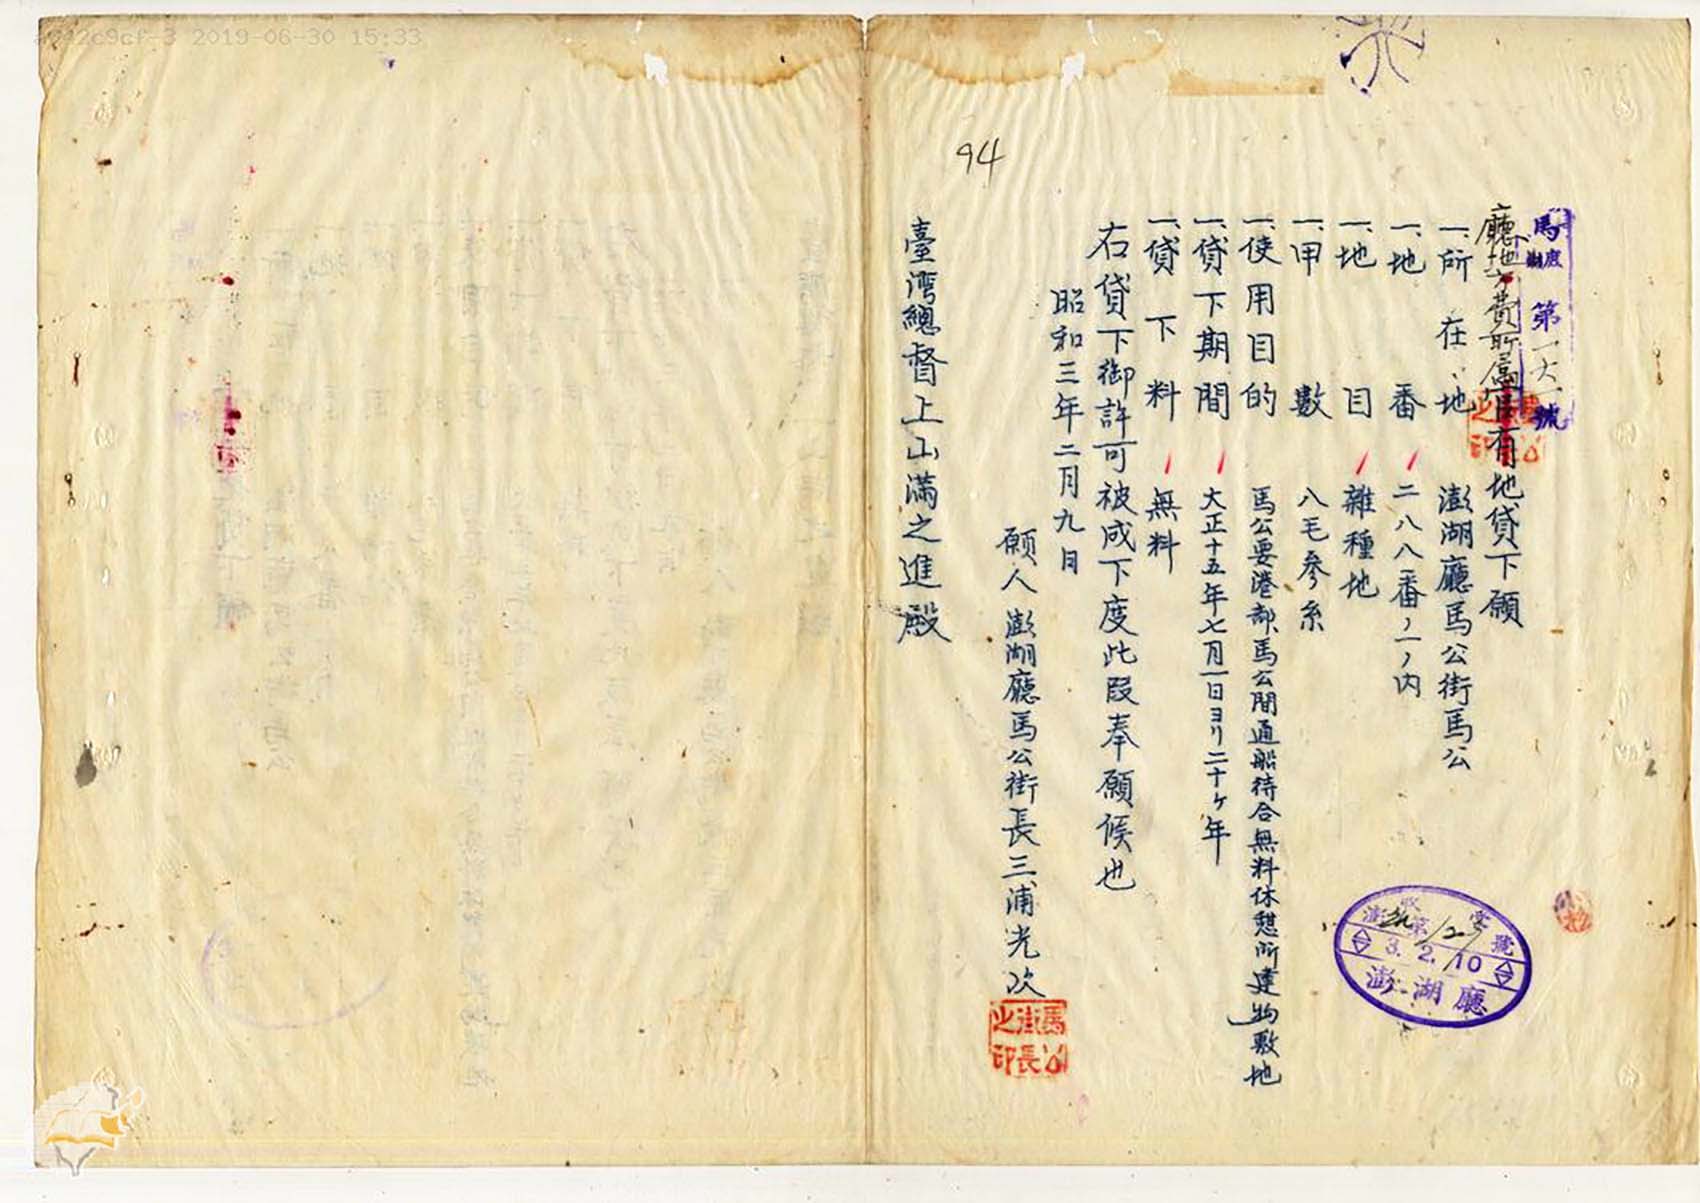 a942c9cf-3 2019-06-30 15:33
94
馬庶第一六一號
廳地方費所屬官有地貸下願
一、所在地 澎湖廳馬公街馬公
一、地番 二八八番ノ一ノ内
一、地目 雜種地
一、甲數 八毛參糸
一、使用目的 馬公要港部馬公間通船待合無料休憩所建物敷地
一、貸下期間 大正十五年七月一日ヨリ二十ヶ年
一、貸下料 無料
右貸下御許可被成下度此段奉願候也
昭和三年二月九日
願人 澎湖廳馬公街長三浦光次
馬公街長之印
臺灣總督上山滿之進殿
3.2.10
澎湖廳